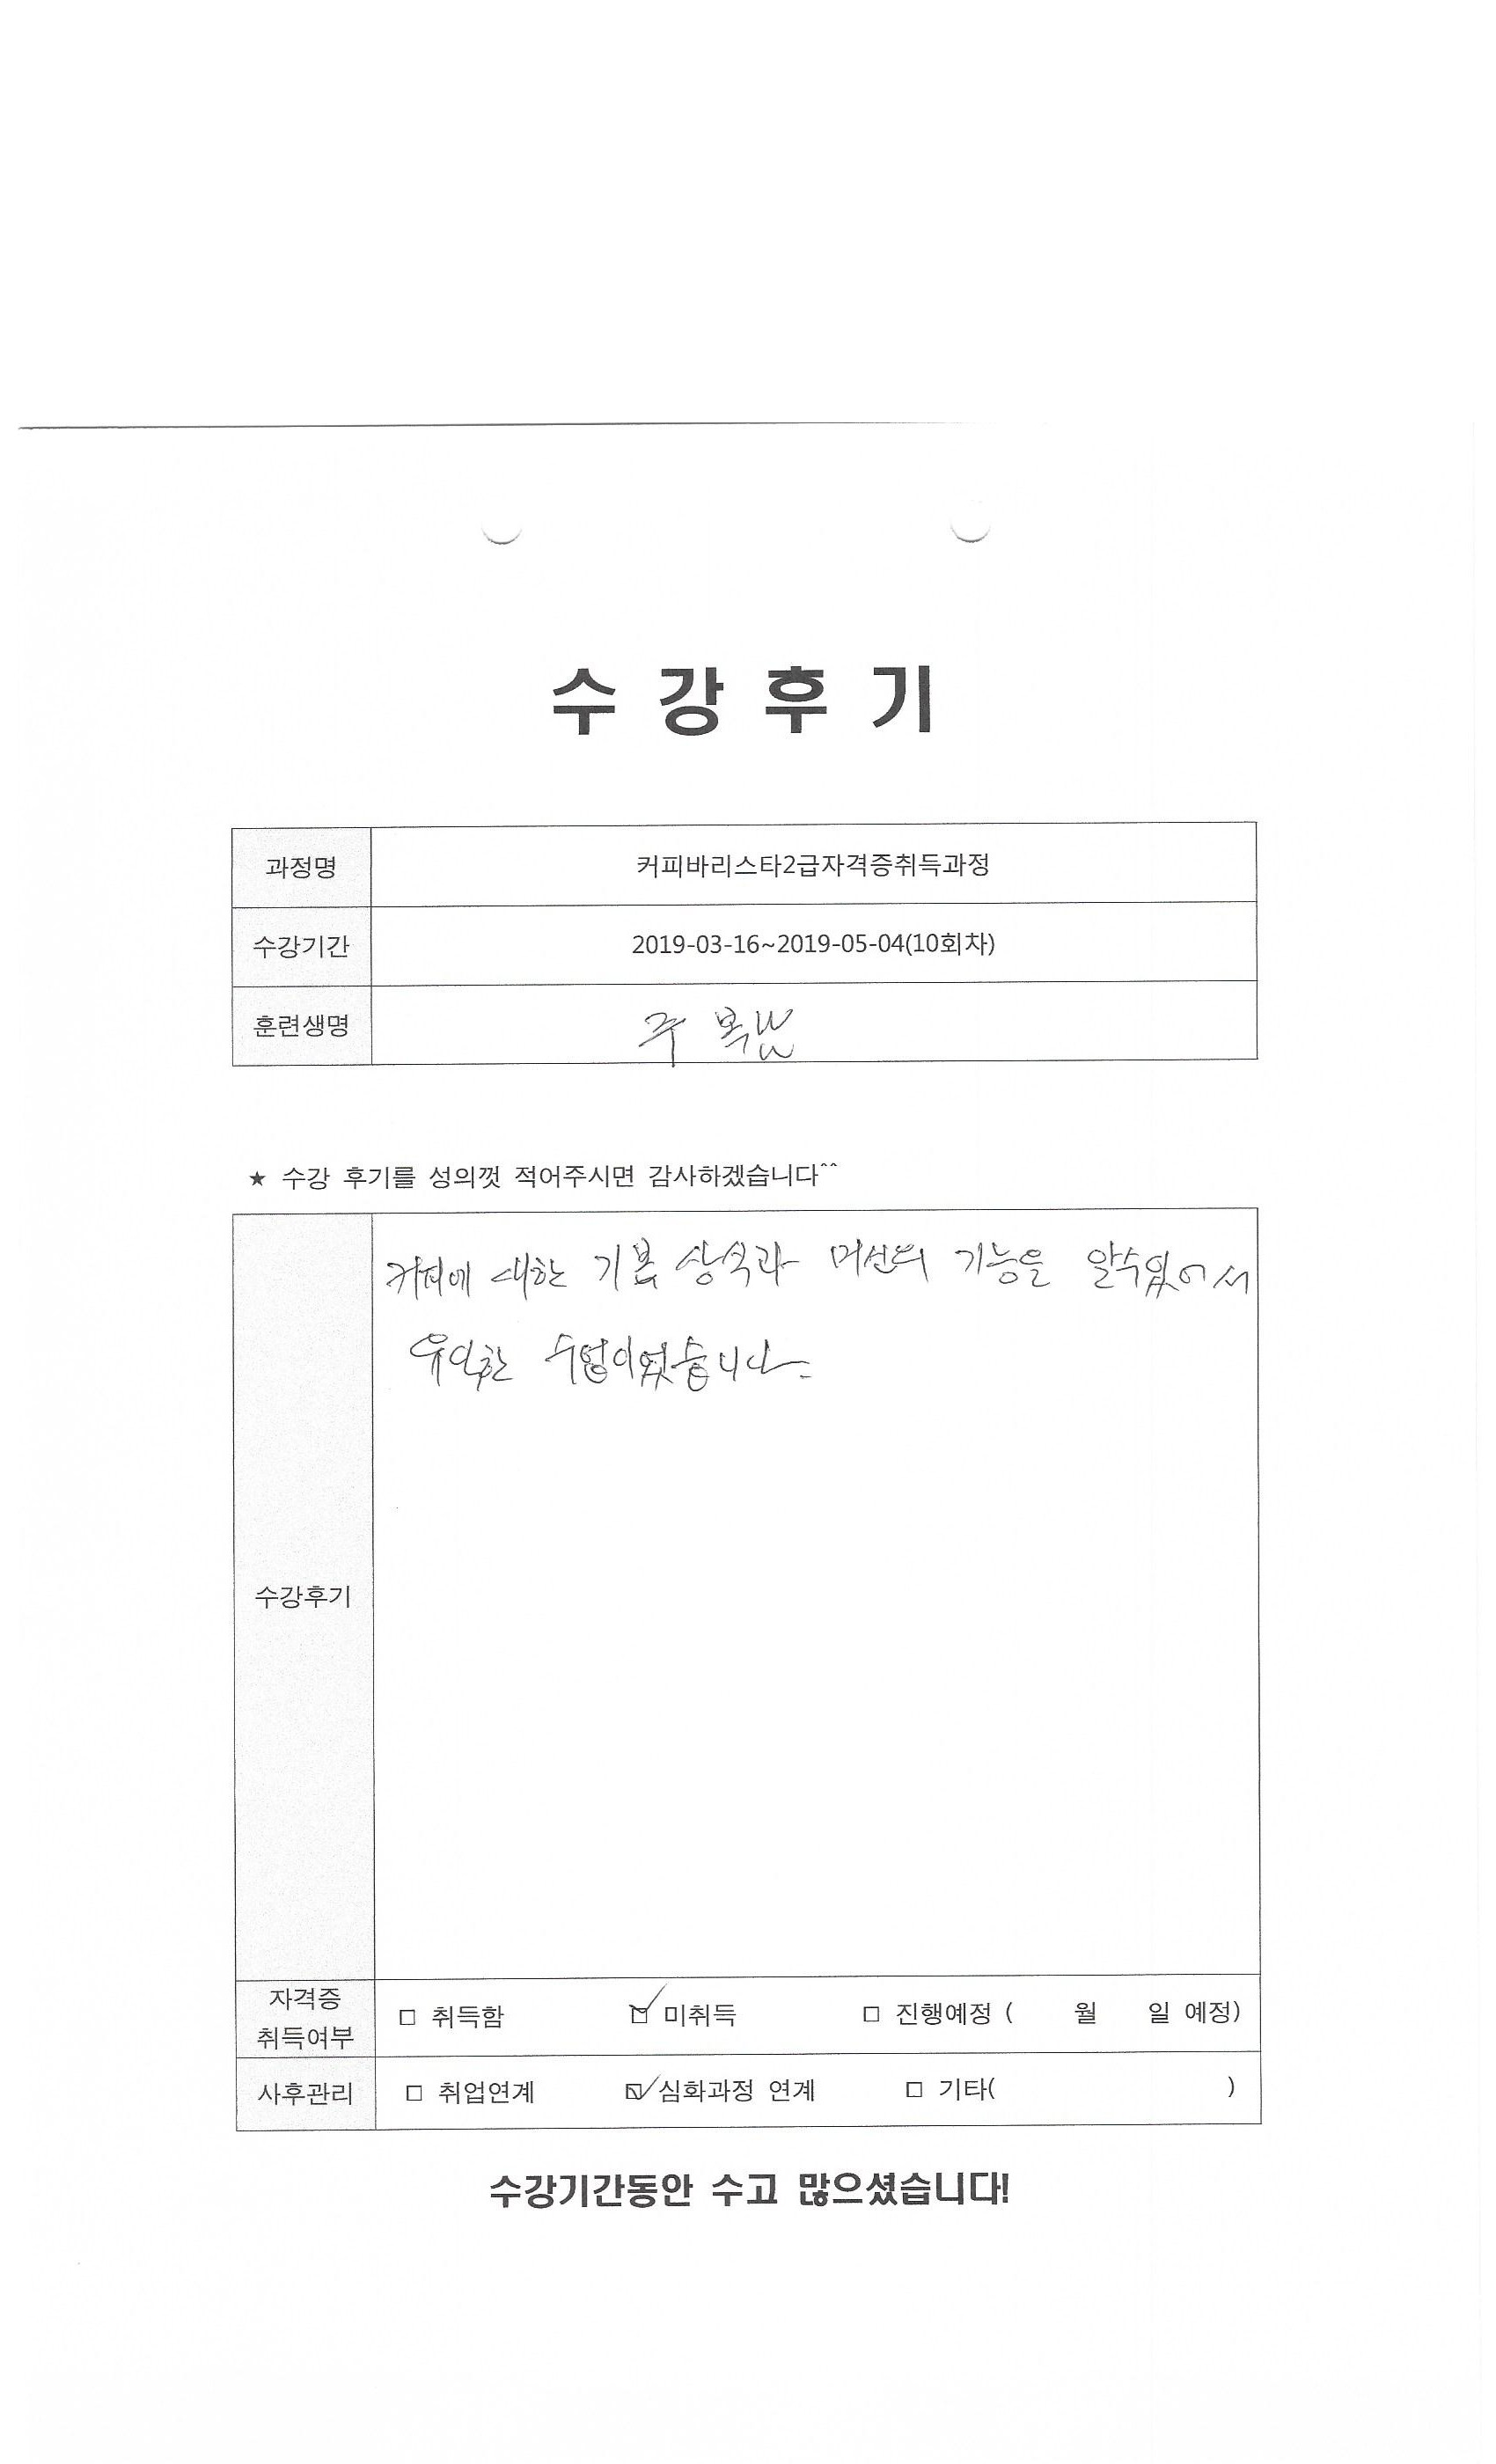 수 강 후 기
과정명 커피바리스타2급자격증취득과정
수강기간 2019-03-16~2019-05-04(10회차)
훈련생명 주 복
★ 수강 후기를 성의껏 적어주시면 감사하겠습니다^^
커피에 대한 기본 상식과 머신의 기능을 알수있어서
유익한 수업이었습니다.
수강후기
자격증
취득여부
□ 취득함 ☑ 미취득 □ 진행예정 ( 월 일 예정)
사후관리 □ 취업연계 ☑ 심화과정 연계 □ 기타( )
수강기간동안 수고 많으셨습니다!